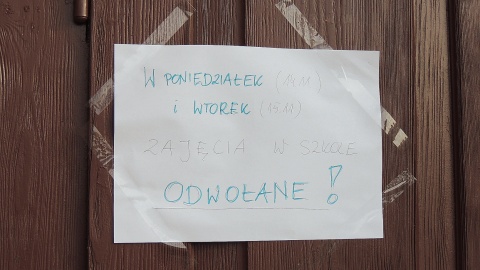 W PONIEDZIAŁEK (14.11)
i WTOREK (15.11)
ZAJĘCIA W SZKOLE
ODWOŁANE!